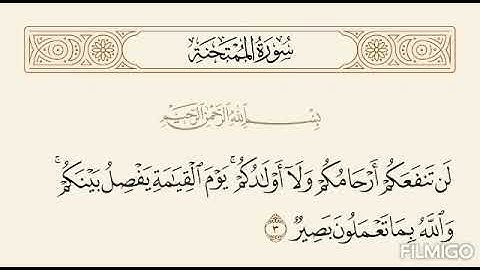 سُورَةُ المُمْتَحنَةِ
بِسْمِ اللَّهِ الرَّحْمَٰنِ الرَّحِيمِ
لَن تَنفَعَكُمْ أَرْحَامُكُمْ وَلَآ أَوْلَٰدُكُمْ ۚ يَوْمَ ٱلْقِيَٰمَةِ يَفْصِلُ بَيْنَكُمْ ۚ
وَٱللَّهُ بِمَا تَعْمَلُونَ بَصِيرٌ ٣
FILMIGO